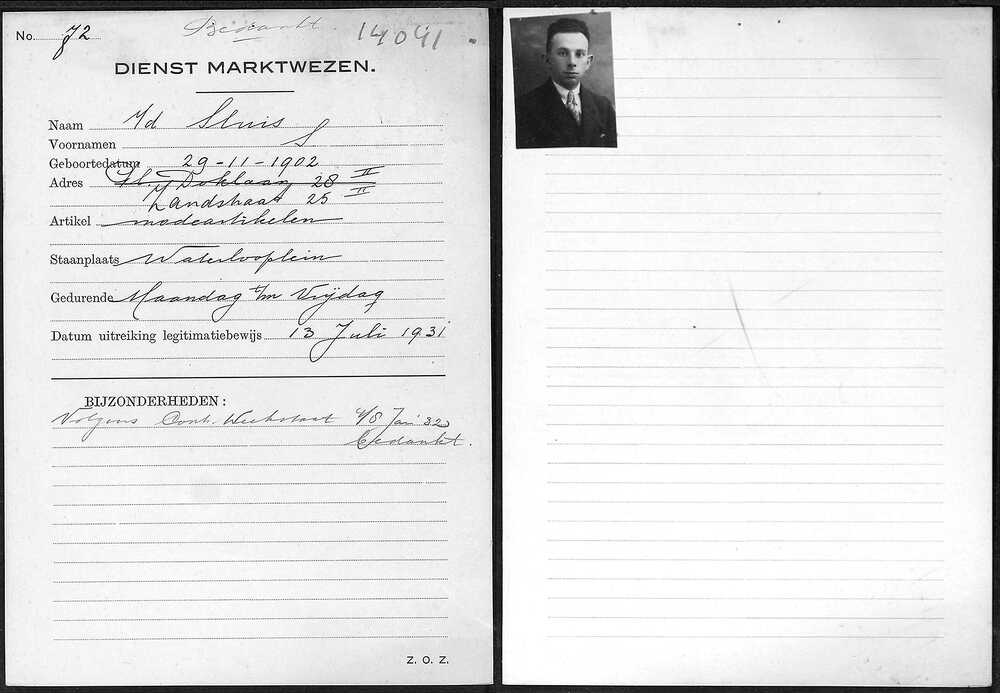 No. 72 Bedankt. 14041
DIENST MARKTWEZEN.
Naam v/d Sluis
Voornamen S
Geboortedatum 29-11-1902
Adres Doklaan 28 II
Zandstraat 25 II
Artikel modeartikelen
Staanplaats Waterlooplein
Gedurende Maandag t/m Vrijdag
Datum uitreiking legitimatiebewijs 13 Juli 1931
BIJZONDERHEDEN:
Volgens Cont. Weekstaat 4/8 Jan 32
Bedankt.
Z. O. Z.